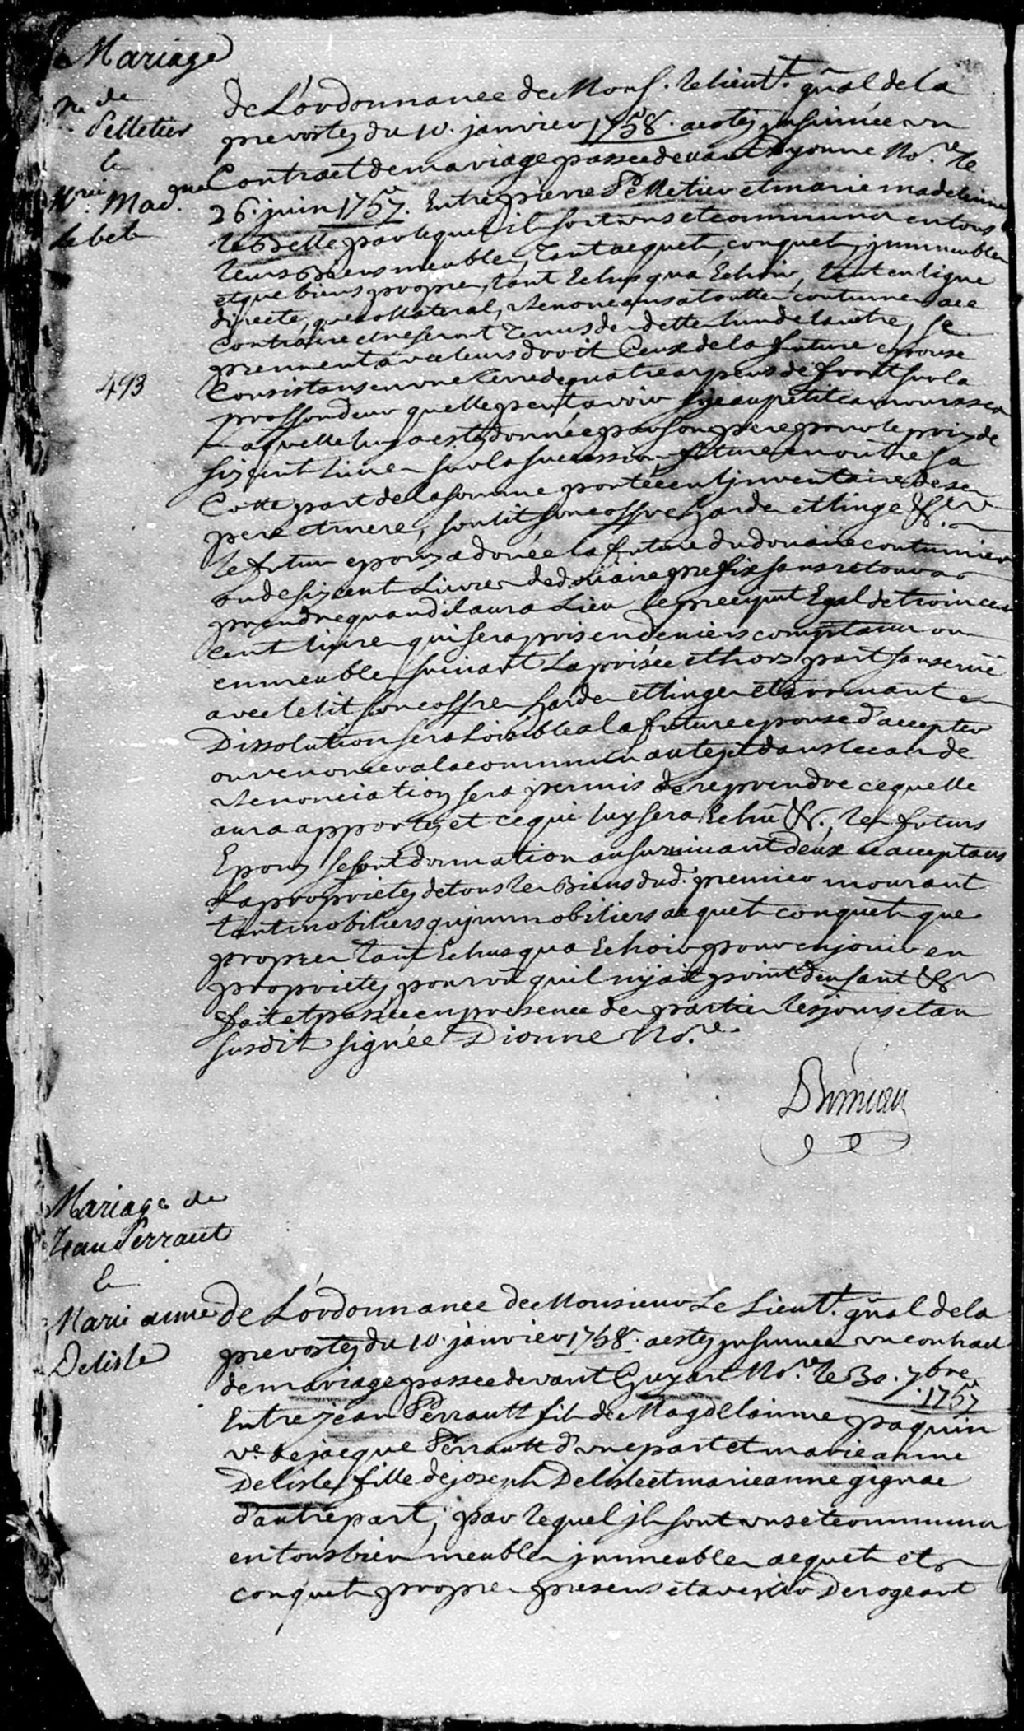 Mariage
de
Pelletier
&
Mad.
Lebel
de L'ordonnance de Mons. le lieut. gnal de la
prevosté du 10. janvier 1758. a esté insinuée un
Contract de mariage passée devant Dyonne No.re le
26. juin 1757. Entre pierre Pelletier et marie madelenne
lebelle par lequel il sont uns et communs en tous
leurs biens meubles, tant acquets, conquets, immeubles
et que biens propres, tant Echus qua Echoir, tant en ligne
directe, que collateral, renonceans a toutte coutumes a ce
Contraire et ne seront tenus des dettes lun de lautre, se
prennent avec leurs droit Ceux de la future epouse
Consistans en une terre de quatre arpens de front sur la
proffondeur quelle peut avoir size au petit camourasca
laquelle luy a esté donnée par son pere pour le prix de
six cent livres sur la succession future en outre sa
Cotte part de la somme portée en linventaire de ses
pere et mere, son lit son coffre hardes et linge &c.
493
le futur epoux a doué la future du douaire coutumier
ou de six cent livres de douaire prefix sans retour a
prendre quand il aura lieu, le preciput Egal de trois cens
cent livres qui sera pris en deniers comptans ou
en meubles suivant la prisée et hors part sans crüe
avec le lit son coffre hardes et linges et avenant
Dissolution sera loisible a la future epouse d'accepter
ou renoncer a la communauté et dans le cas de
renonciation sera permis de reprendre ce quelle
aura apporté et ce qui luy sera Echu &c., les futurs
Epoux se font donnation au survivant deux ce acceptans
La proprieté de tous les Biens dud. premier mourant
tant mobiliers qu'immobiliers acquets conquets que
propres tant Echus qua Echoir pour en jouir en
proprieté pourvû quil n'y ait point denfant &c
fait et passée en presence des parties les jours et an
susdit signée Dionne No.re
Mariage de
Jean Perraut
&
Marie anne
Delisle
de L'ordonnance de Monsieur Le Lieut. gnal de la
prevosté du 10. janvier 1758. a esté insinuée un contract
de mariage passée devant Guyart No.re le 30. 7bre
1757
Entre jean Perrault fils de Magdelainne paquin
ve. de jacque Perrault d'une part et marie anne
Delisle fille de joseph Delisle et marie anne gignac
d'autre part, par lequel ils sont uns et communs
en tous biens meubles immeubles acquets et
conquets propres presens et avenir Derogeant